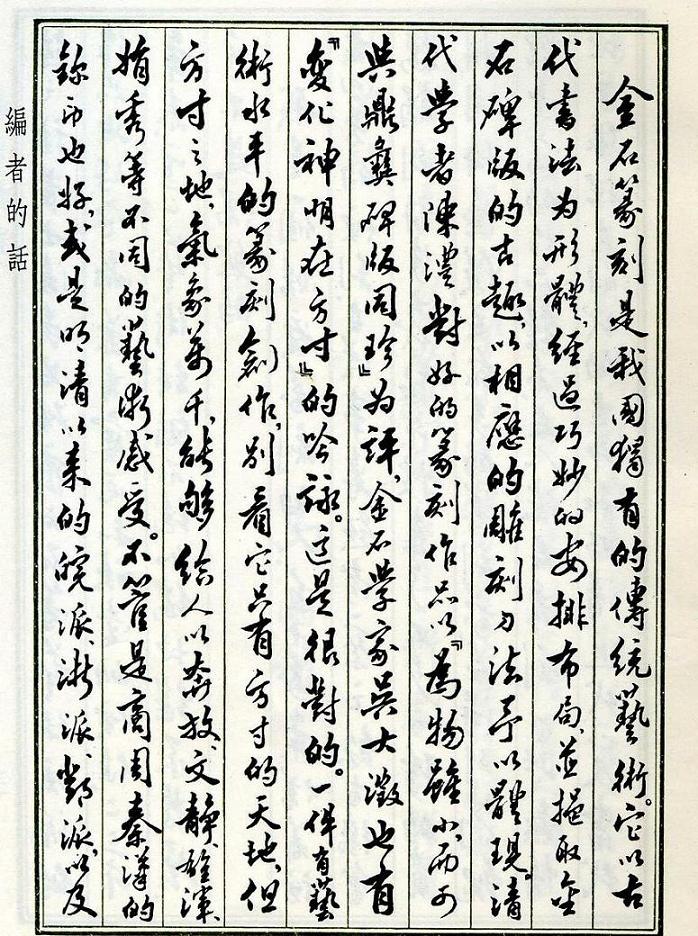 金石篆刻是我國獨有的傳統藝術。它以古
代書法为形體,經過巧妙的安排布局、並挹取金
石碑版的古趣,以相應的雕刻刀法予以體現。清
代學者陳澧對好的篆刻作品以『為物雖小,而可
與鼎彝碑版同珍』为評,金石學家吳大澂也有
『變化神明在方寸』的吟詠。這是很對的。一件有藝
術水平的篆刻創作,別看它只有方寸的天地,但
方寸之地,氣象萬千,能够給人以奔放、文静、雄渾、
娟秀等不同的藝術感受。不管是商周秦漢的
鉨印也好,或是明清以来的皖派、浙派、鄧派,以及
編者的話